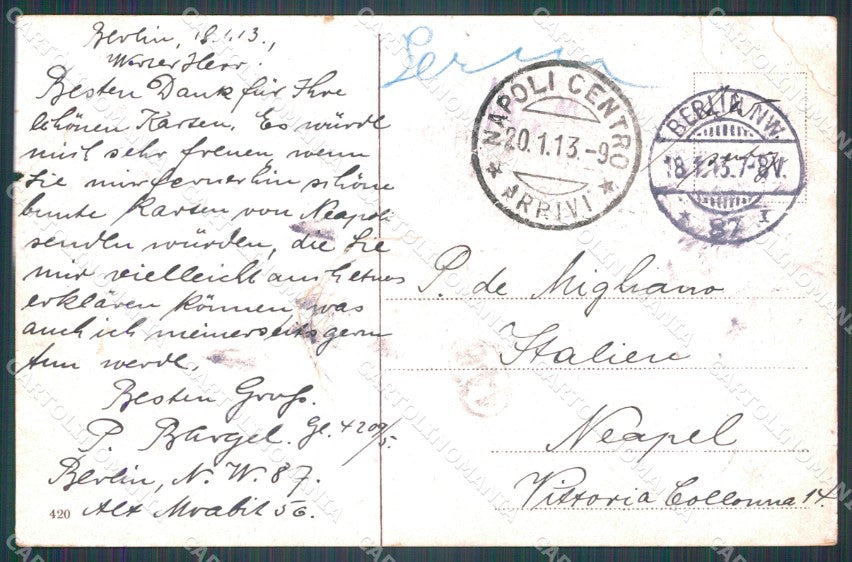 Berlin, 18.1.13.,
Werter Herr.
Besten Dank für Ihre
schönen Karten. Es würde
mich sehr freuen, wenn
Sie mir fernerhin schöne
bunte Karten von Neapel
senden würden, die Sie
mir vielleicht auch etwas
erklären können, was
auch ich meinerseits gern
tun werde.
Besten Gruß.
P. Bargel.
Berlin, N. W. 87.
Alt Moabit 56.
420
NAPOLI CENTRO
20.1.13.-9
ARRIVI
BERLIN NW
18.1.13.7-8V.
87
P. de Migliano
Italien
Neapel
Vittoria Collonna 14.
CARTOLINOMANIA